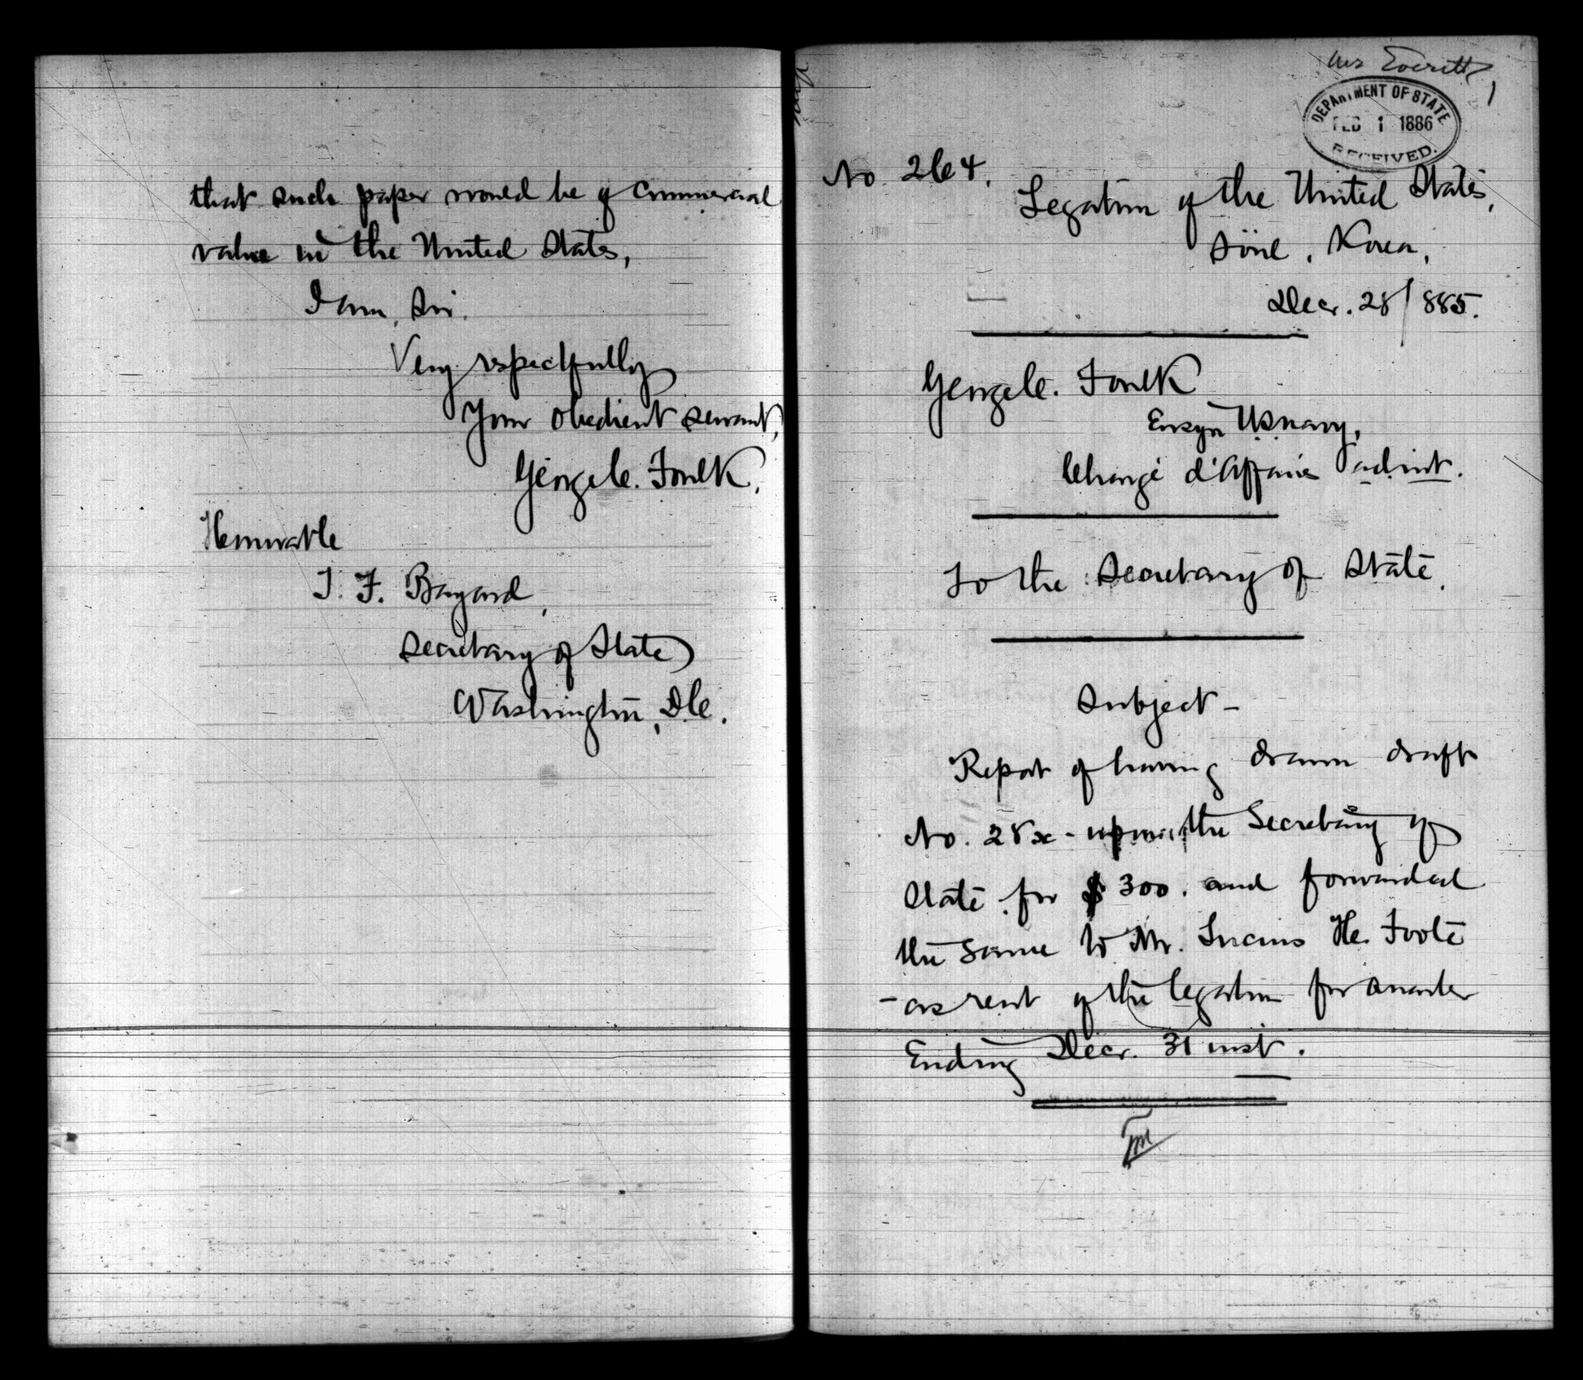 that such paper would be of commercial
value in the United States,
I am, Sir,
Very respectfully
Your obedient servant,
George C. Foulk.
Honorable
T. F. Bayard,
Secretary of State
Washington, D.C.
Mr Everett
DEPARTMENT OF STATE
FEB 1 1886
RECEIVED.
No. 264.
Legation of the United States,
Söul, Korea,
Decr. 28/885.
George C. Foulk
Ensign U.S. Navy,
Chargé d'Affaires ad. int.
To the Secretary of State.
Subject-
Report of having drawn draft
No. 28 - upon the Secretary of
State for $300. and forwarded
the same to Mr. Lucius H. Foote
- as rent of the legation for quarter
Ending Decr. 31 inst.